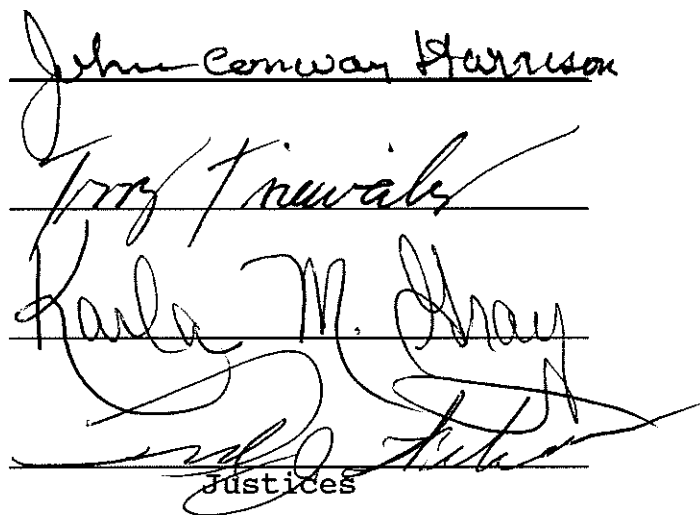 John Conway Harrison
Terry Trieweiler
Karla M. Gray
Justices